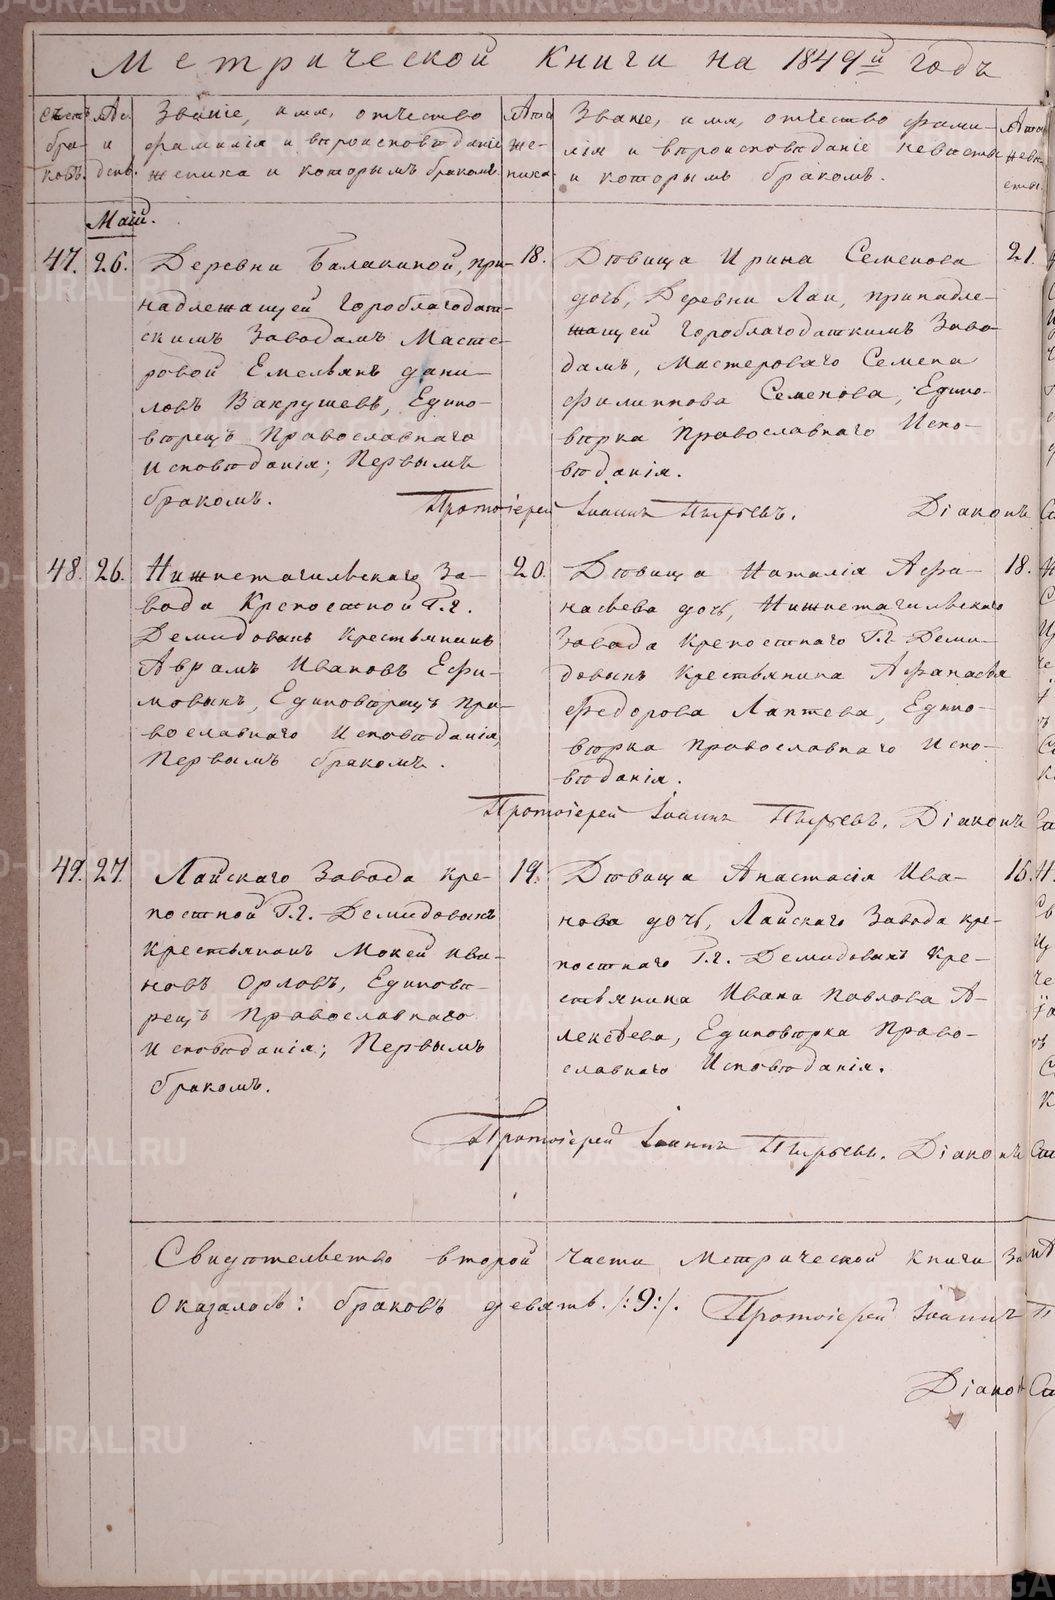 Метрической Книги на 1849й годъ
Счетъ браковъ.
Мѣ. и день.
Званіе, имя, отчество
фамилія и вѣроисповѣданіе
жениха и которымъ бракомъ.
Лѣта жениха
Званіе, имя, отчество фами-
лія и вѣроисповѣданіе невѣсты
и которымъ бракомъ.
Лѣта невѣсты.
Маій.
47.
26.
Деревни Балакиной, при-
надлежащей Гороблагодат-
скимъ Заводамъ Масте-
ровой Емельянъ Дани-
ловъ Вахрушевъ, Едино-
вѣрецъ Православнаго
Исповѣданія; Первымъ
бракомъ.
18.
Дѣвица Ирина Семенова
дочь, Деревни Лаи, принадле-
жащей Гороблагодатскимъ Заво-
дамъ, Мастероваго Семена
Филиппова Семенова, Едино-
вѣрка Православнаго Испо-
вѣданія.
21.
Протоіерей Іоаннъ Пырьевъ. Діаконъ
48.
26.
Нижнетагильскаго За-
вода Крепостной Г.г.
Демидовыхъ Крестьянинъ
Аврамъ Ивановъ Ефи-
мовыхъ, Единовѣрецъ Пра-
вославнаго Исповѣданія,
Первымъ бракомъ.
20.
Дѣвица Наталія Афа-
насьева дочь, Нижнетагильскаго
Завода Крепостнаго Г.г. Деми-
довыхъ Крестьянина Афанасья
Федорова Лаптева, Едино-
вѣрка Православнаго Испо-
вѣданія.
18.
Протоіерей Іоаннъ Пырьевъ. Діаконъ
49.
27.
Лайскаго Завода кре-
постной Г.г. Демидовыхъ
Крестьянинъ Мокей Ива-
новъ Орловъ, Единовѣ-
рецъ Православнаго
Исповѣданія; Первымъ
бракомъ.
19.
Дѣвица Анастасія Ива-
нова дочь, Лайскаго Завода кре-
постнаго Г.г. Демидовыхъ Кре-
стьянина Ивана Павлова А-
лексѣева, Единовѣрка Право-
славнаго Исповѣданія.
16.
Протоіерей Іоаннъ Пырьевъ. Діаконъ
Свидѣтельство второй части Метрической Книги За
Оказалось: браковъ девять ./:9:/. Протоіерей Іоаннъ
Діаконъ
METRIKI.GASO-URAL.RU